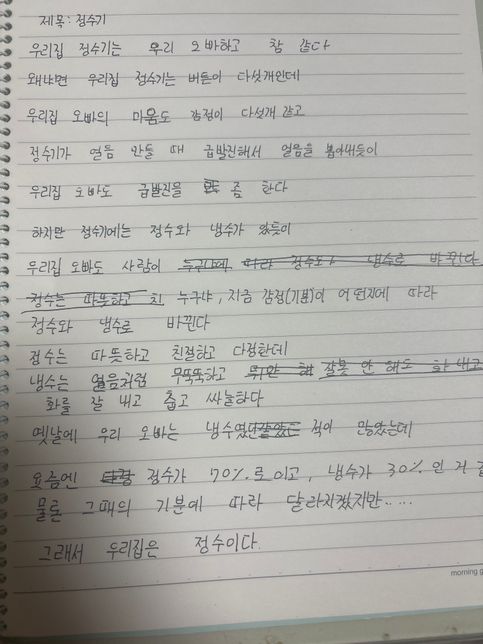 제목: 정수기
우리집 정수기는 우리 오빠하고 참 같다
왜냐면 우리집 정수기는 버튼이 다섯개인데
우리집 오빠의 마음도 감정이 다섯개 같고
정수기가 얼음 만들 때 급발진해서 얼음을 뽑아내듯이
우리집 오빠도 급발진을 좀 한다
하지만 정수기에는 정수와 냉수가 있듯이
우리집 오빠도 사람이 누구냐에 따라 정수와 냉수로 바뀐다
정수는 따뜻하고 친 누구냐, 지금 감정(기분)이 어떤지에 따라
정수와 냉수로 바뀐다
정수는 따뜻하고 친절하고 다정한데
냉수는 얼음처럼 무뚝뚝하고 잘못 안 해도 화 내고
화를 잘 내고 춥고 싸늘하다
옛날에 우리 오빠는 냉수였던 적이 많았는데
요즘엔 정수가 70%로이고, 냉수가 30%인 거
물론 그때의 기분에 따라 달라지겠지만.....
그래서 우리집은 정수이다.
morning